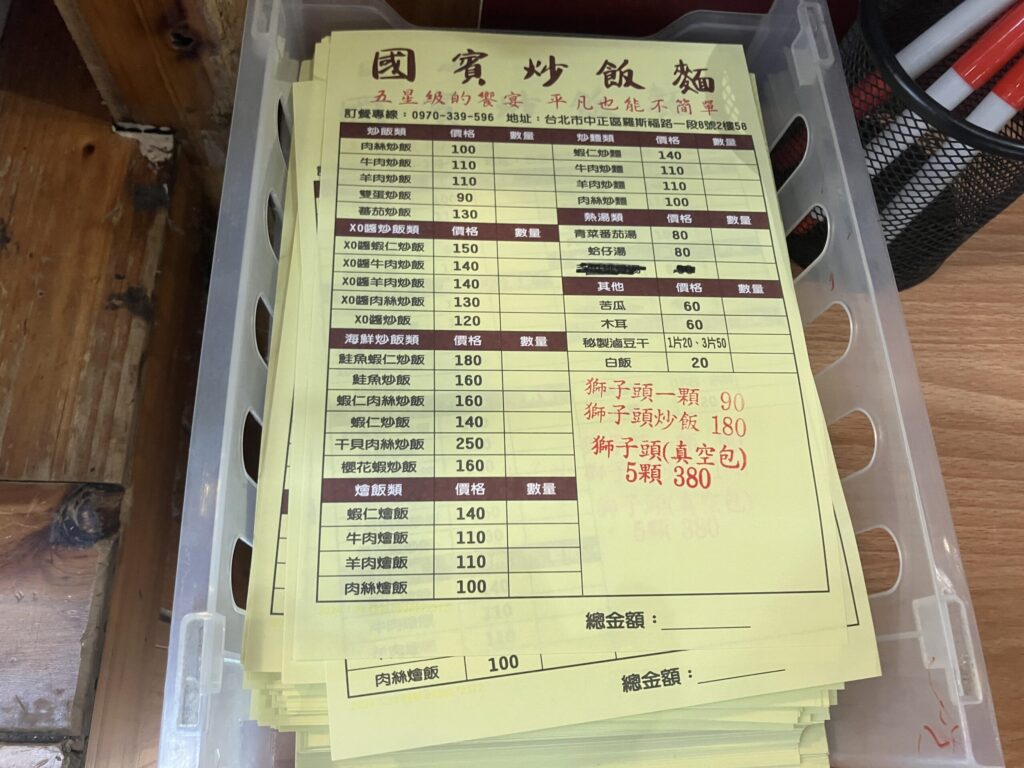 國賓炒飯麵
五星級的饗宴 平凡也能不簡單
訂餐專線：0970-339-596 地址：台北市中正區羅斯福路一段8號2樓58
炒飯類 價格 數量
肉絲炒飯 100
牛肉炒飯 110
羊肉炒飯 110
雙蛋炒飯 90
番茄炒飯 130
XO醬炒飯類 價格 數量
XO醬蝦仁炒飯 150
XO醬牛肉炒飯 140
XO醬羊肉炒飯 140
XO醬肉絲炒飯 130
XO醬炒飯 120
海鮮炒飯類 價格 數量
鮭魚蝦仁炒飯 180
鮭魚炒飯 160
蝦仁肉絲炒飯 160
蝦仁炒飯 140
干貝肉絲炒飯 250
櫻花蝦炒飯 160
燴飯類 價格 數量
蝦仁燴飯 140
牛肉燴飯 110
羊肉燴飯 110
肉絲燴飯 100
炒麵類 價格 數量
蝦仁炒麵 140
牛肉炒麵 110
羊肉炒麵 110
肉絲炒麵 100
熱湯類 價格 數量
青菜番茄湯 80
蛤仔湯 80
其他 價格 數量
苦瓜 60
木耳 60
秘製滷豆干 1片20、3片50
白飯 20
獅子頭一顆 90
獅子頭炒飯 180
獅子頭(真空包)
5顆 380
總金額：
肉絲燴飯 100
總金額：